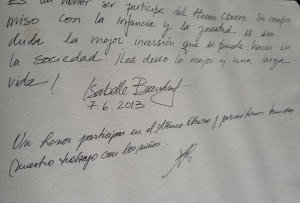 Es un honor ser partícipe del Ateneo Obrero. Su compro
miso con la infancia y la juventud es sin
duda la mejor inversión que se puede hacer en
la sociedad. ¡Les deseo lo mejor y una larga
vida!
Isabelle
7.6.2013
Un honor participar en el Ateneo Obrero y
nuestro trabajo con los niños.